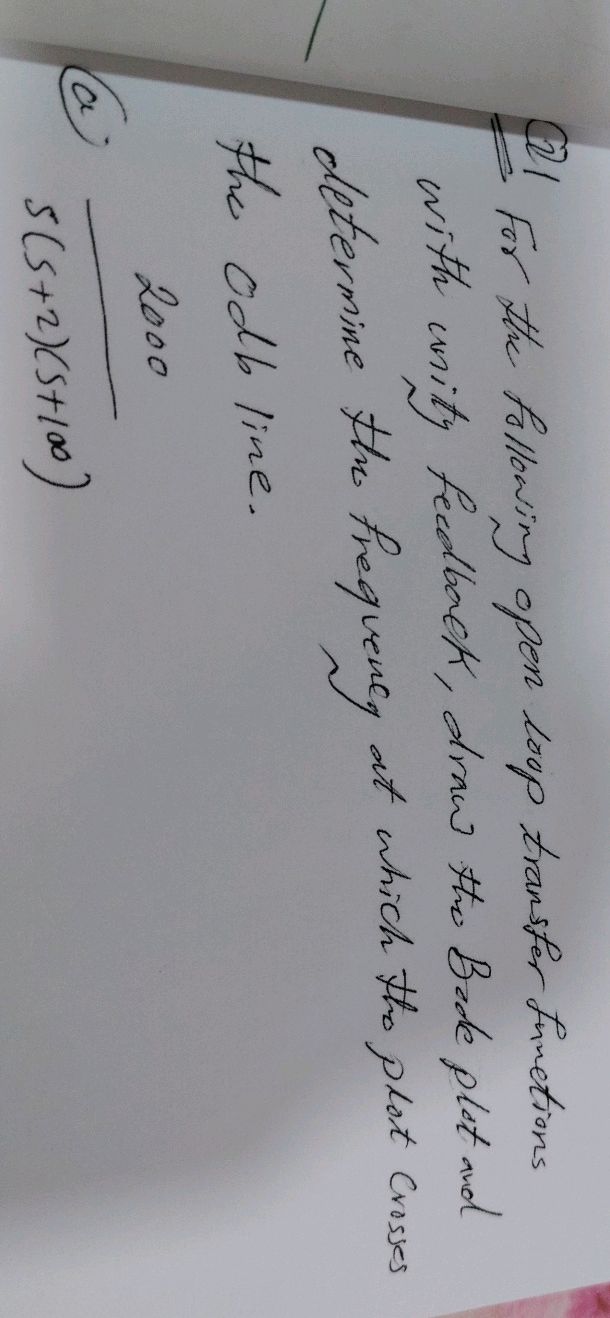 Q1 For the following open loop transfer functions
with unity feedback, draw the Bode plot and
determine the frequency at which the plot crosses
the 0db line.
(a) 2000
s(s+2)(s+100)